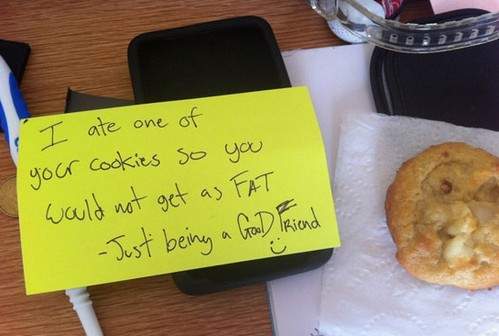 I ate one of
your cookies so you
would not get as FAT
-Just being a GooD Friend